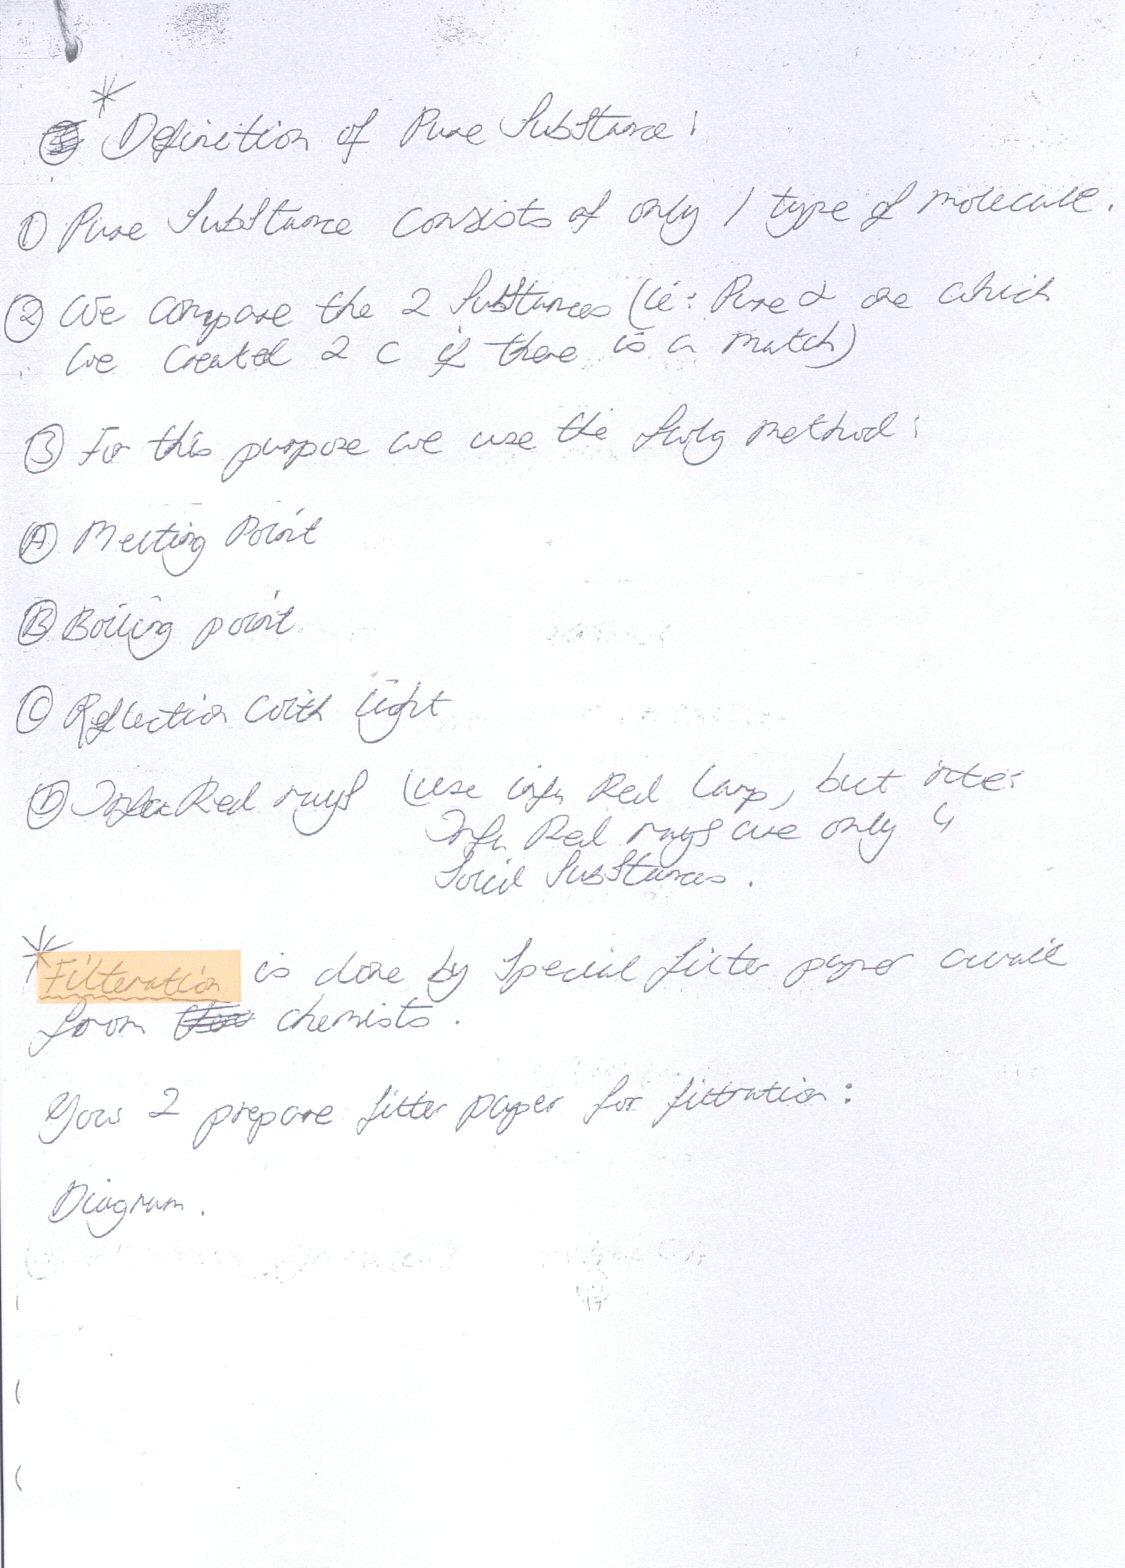 * Definition of Pure Substance:
① Pure Substance consists of only 1 type of molecule.
② We compare the 2 Substances (ie: Pure & one which
we created 2 C if there is a match)
③ For this purpose we use the method:
Ⓐ Melting Point
Ⓑ Boiling point
Ⓒ Reflection with light
Ⓓ Infra Red rays (use infra Red Lamp, but note:
Infra Red rays are only 4
Solid Substances.
* Filteration is done by Special filter paper avail
from chemists.
2 prepare filter paper for filtration:
Diagram.